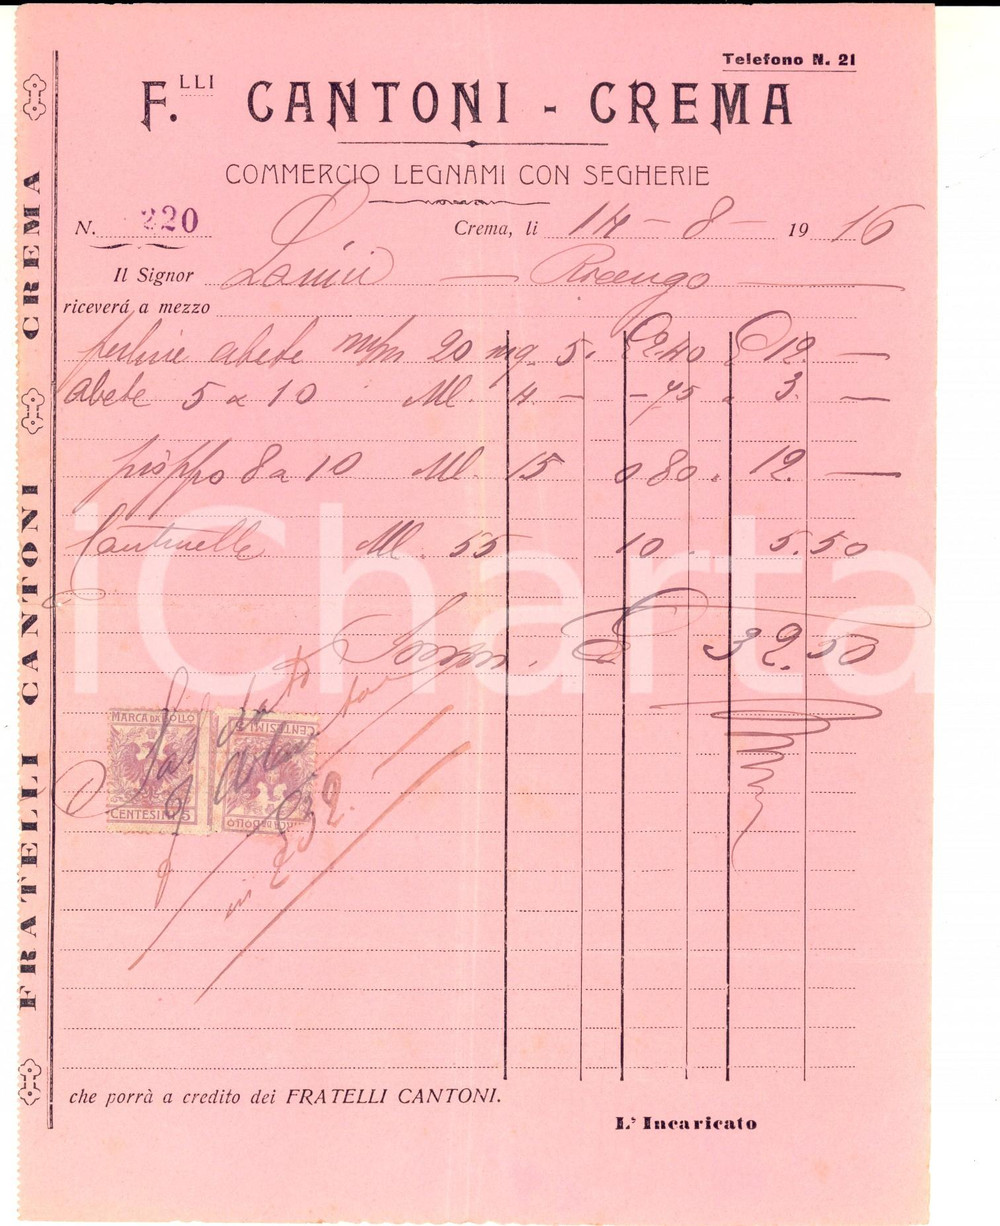 Telefono N. 21
F.LLI CANTONI - CREMA
COMMERCIO LEGNAMI CON SEGHERIE
N. 220
Crema, li 14 - 8 - 1916
Il Signor Lanini — Ricengo —
riceverá a mezzo
abete m/m 20 mq. 5. £ 2.40 £ 12. —
abete 5 a 10 Ml. 4. - - 75 " 3. —
pioppo 8 a 10 Ml. 15 0 80 " 12. —
Cantinelle Ml. 55 10 " 5.50
Somm. £ 32.50
MARCA DA BOLLO
CENTESIMI 5
MARCA DA BOLLO
CENTESIMI
che porrà a credito dei FRATELLI CANTONI.
L'Incaricato
FRATELLI CANTONI CREMA
iCharta